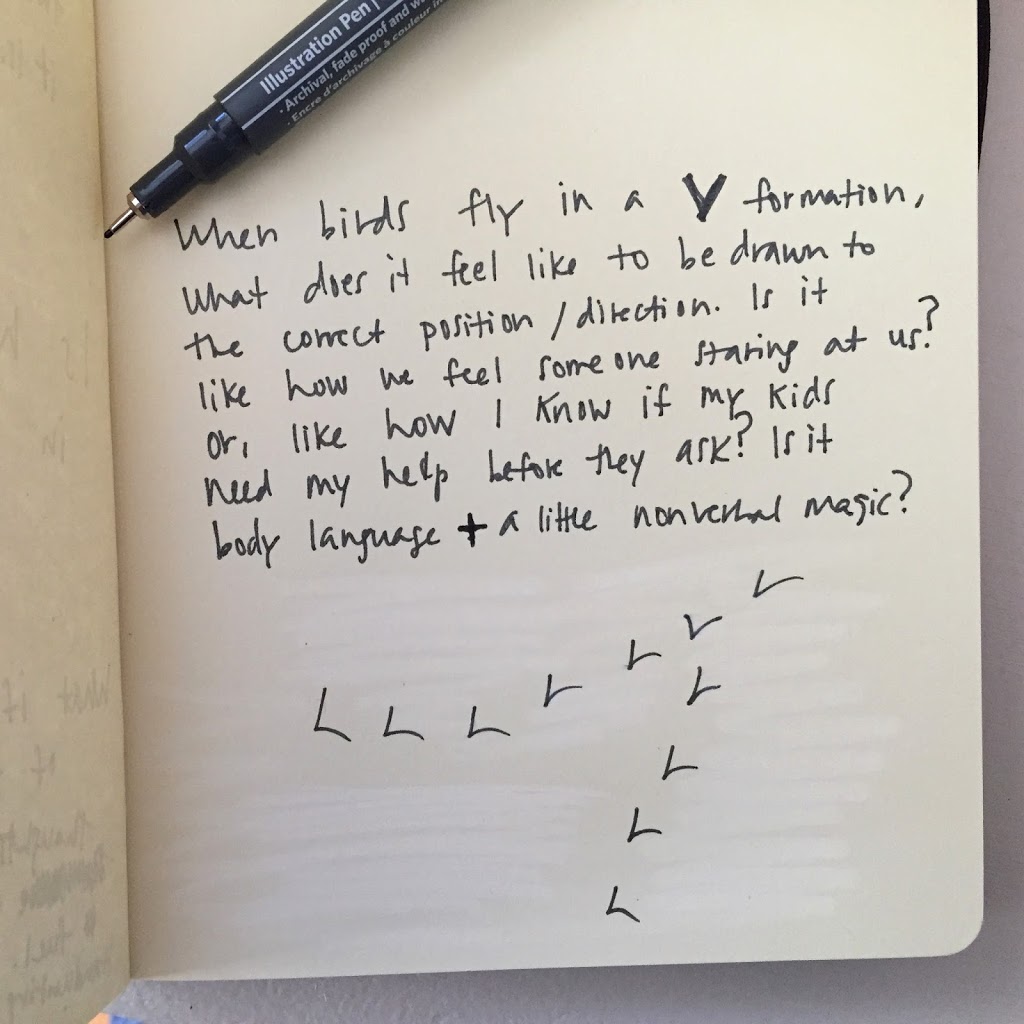 Illustration Pen
· Archival, fade proof and w
· Encre d'archivage à couleur in
When birds fly in a V formation,
what does it feel like to be drawn to
the correct position/direction. Is it
like how we feel someone staring at us?
or, like how I know if my kids
need my help before they ask? Is it
body language + a little nonverbal magic?